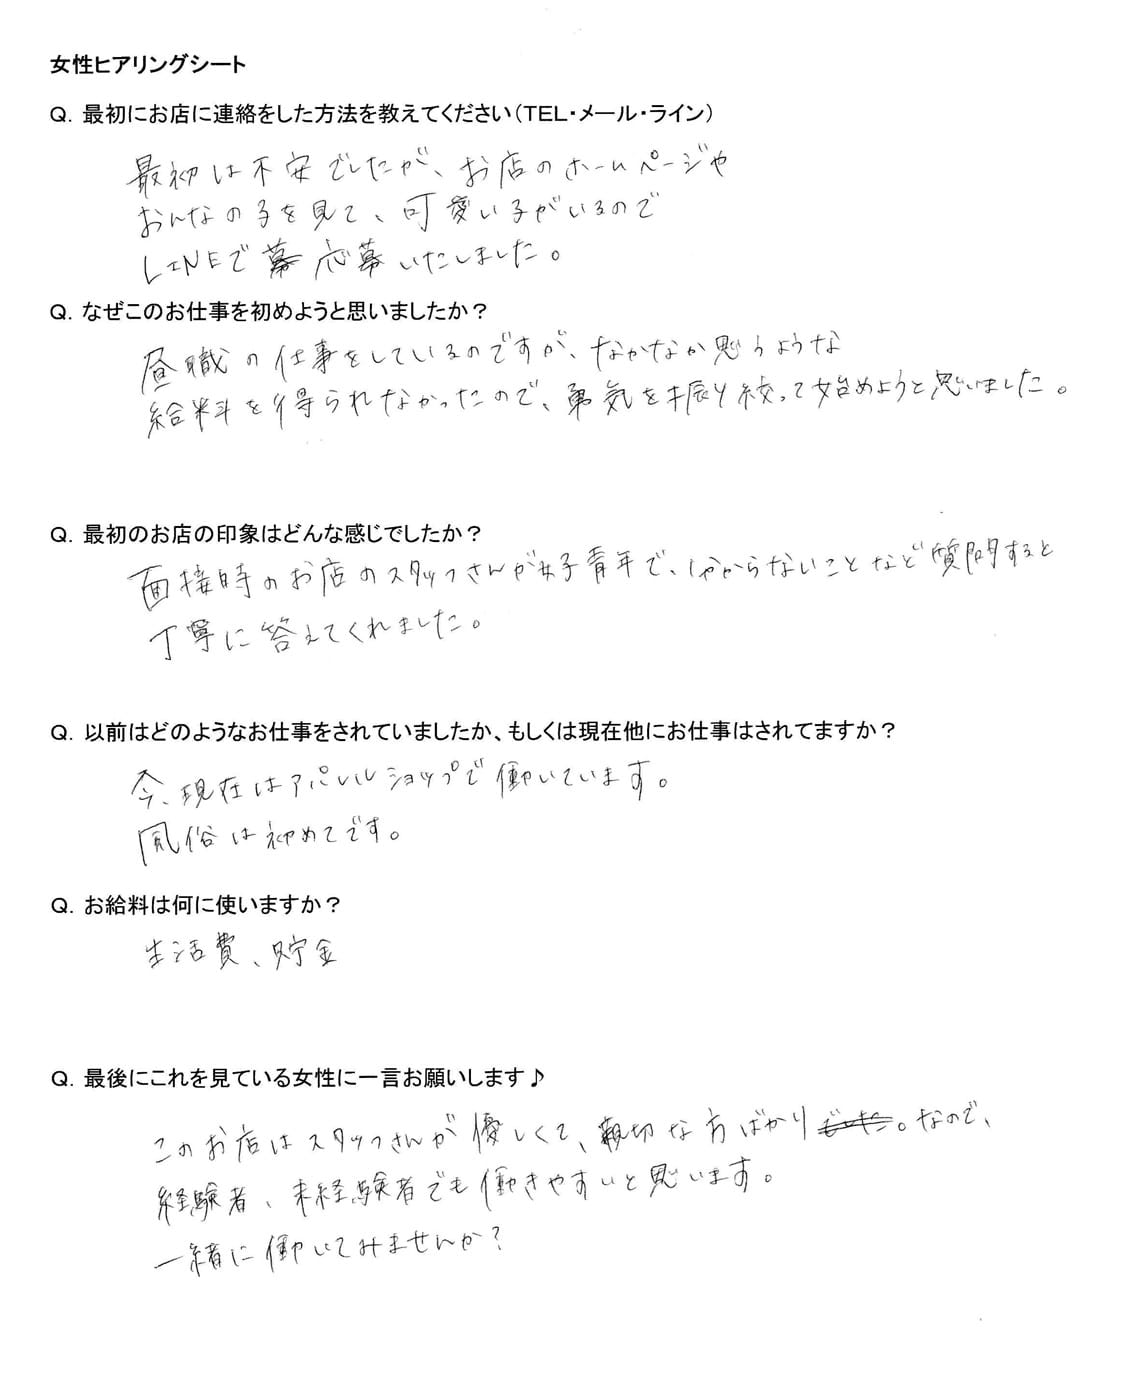 女性ヒアリングシート
Q. 最初にお店に連絡をした方法を教えてください(TEL・メール・ライン)
最初は不安でしたが、お店のホームページや
おんなの子を見て、可愛い子がいるので
LINEで募応募いたしました。
Q. なぜこのお仕事を初めようと思いましたか?
昼職の仕事をしているのですが、なかなか思うような
給料を得られなかったので、勇気を振り絞って始めようと思いました。
Q. 最初のお店の印象はどんな感じでしたか?
面接時のお店のスタッフさんが好青年で、分からないことなど質問すると
丁寧に答えてくれました。
Q. 以前はどのようなお仕事をされていましたか、もしくは現在他にお仕事はされてますか?
今、現在はアパレルショップで働いています。
風俗は初めてです。
Q. お給料は何に使いますか?
生活費、貯金
Q. 最後にこれを見ている女性に一言お願いします♪
このお店はスタッフさんが優しくて、親切な方ばかり。なので、
経験者、未経験者でも働きやすいと思います。
一緒に働いてみませんか?